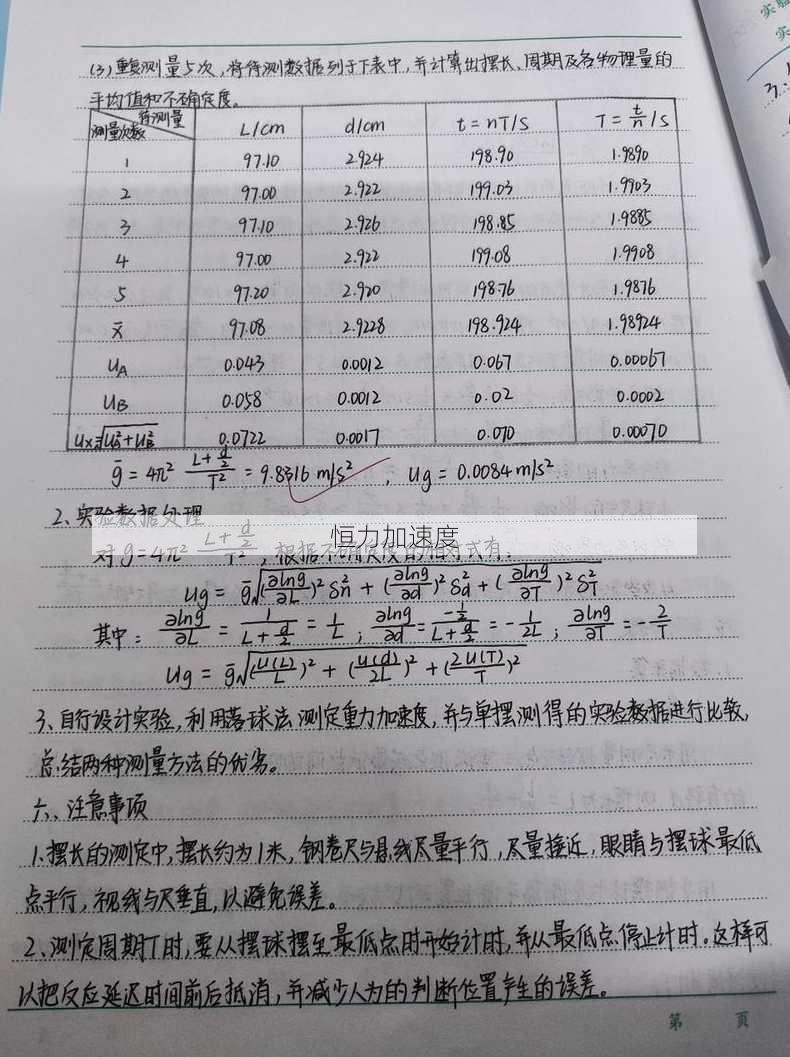 (3)重复测量5次,将待测数据列于下表中,并计算出摆长、周期及各物理量的
平均值和不确定度。
待测量
测量次数 L/cm d/cm t=nT/S T=t/n/S
1 97.10 2.924 198.90 1.9890
2 97.00 2.922 199.03 1.9903
3 97.10 2.926 198.85 1.9885
4 97.00 2.922 199.08 1.9908
5 97.20 2.920 198.76 1.9876
x̄ 97.08 2.9228 198.924 1.98924
UA 0.043 0.0012 0.067 0.00067
UB 0.058 0.0012 0.02 0.0002
Ux=√(UA²+UB²) 0.0722 0.0017 0.070 0.00070
ḡ=4π² (L+d/2)/T² = 9.8316 m/s², Ug=0.0084m/s²
2、实验数据处理
恒力加速度
对g=4π² (L+d/2)/T²,根据不确定度的
式有:
Ug=ḡ√((∂lng/∂L)²δn²+(∂lng/∂d)²δd²+(∂lng/∂T)²δT²)
其中:∂lng/∂L=1/(L+d/2)=1/L;∂lng/∂d=(-1/2)/(L+d/2)=-1/2L;∂lng/∂T=-2/T
Ug=ḡ√((U(L)/L)²+(U(d)/2L)²+(2U(T)/T)²)
3、自行设计实验,利用落球法测定重力加速度,并与单摆测得的实验数据进行比较,
总结两种测量方法的优劣。
六、注意事项
1、摆长的测定中,摆长约为1米,钢卷尺与悬线尽量平行,尽量接近,眼睛与摆球最低
点平行,视线与尺垂直,以避免误差。
2、测定周期T时,要从摆球摆至最低点时开始计时,并从最低点停止计时。这样可
以把反应延迟时间前后抵消,并减少人为的判断位置产生的误差。
第 页